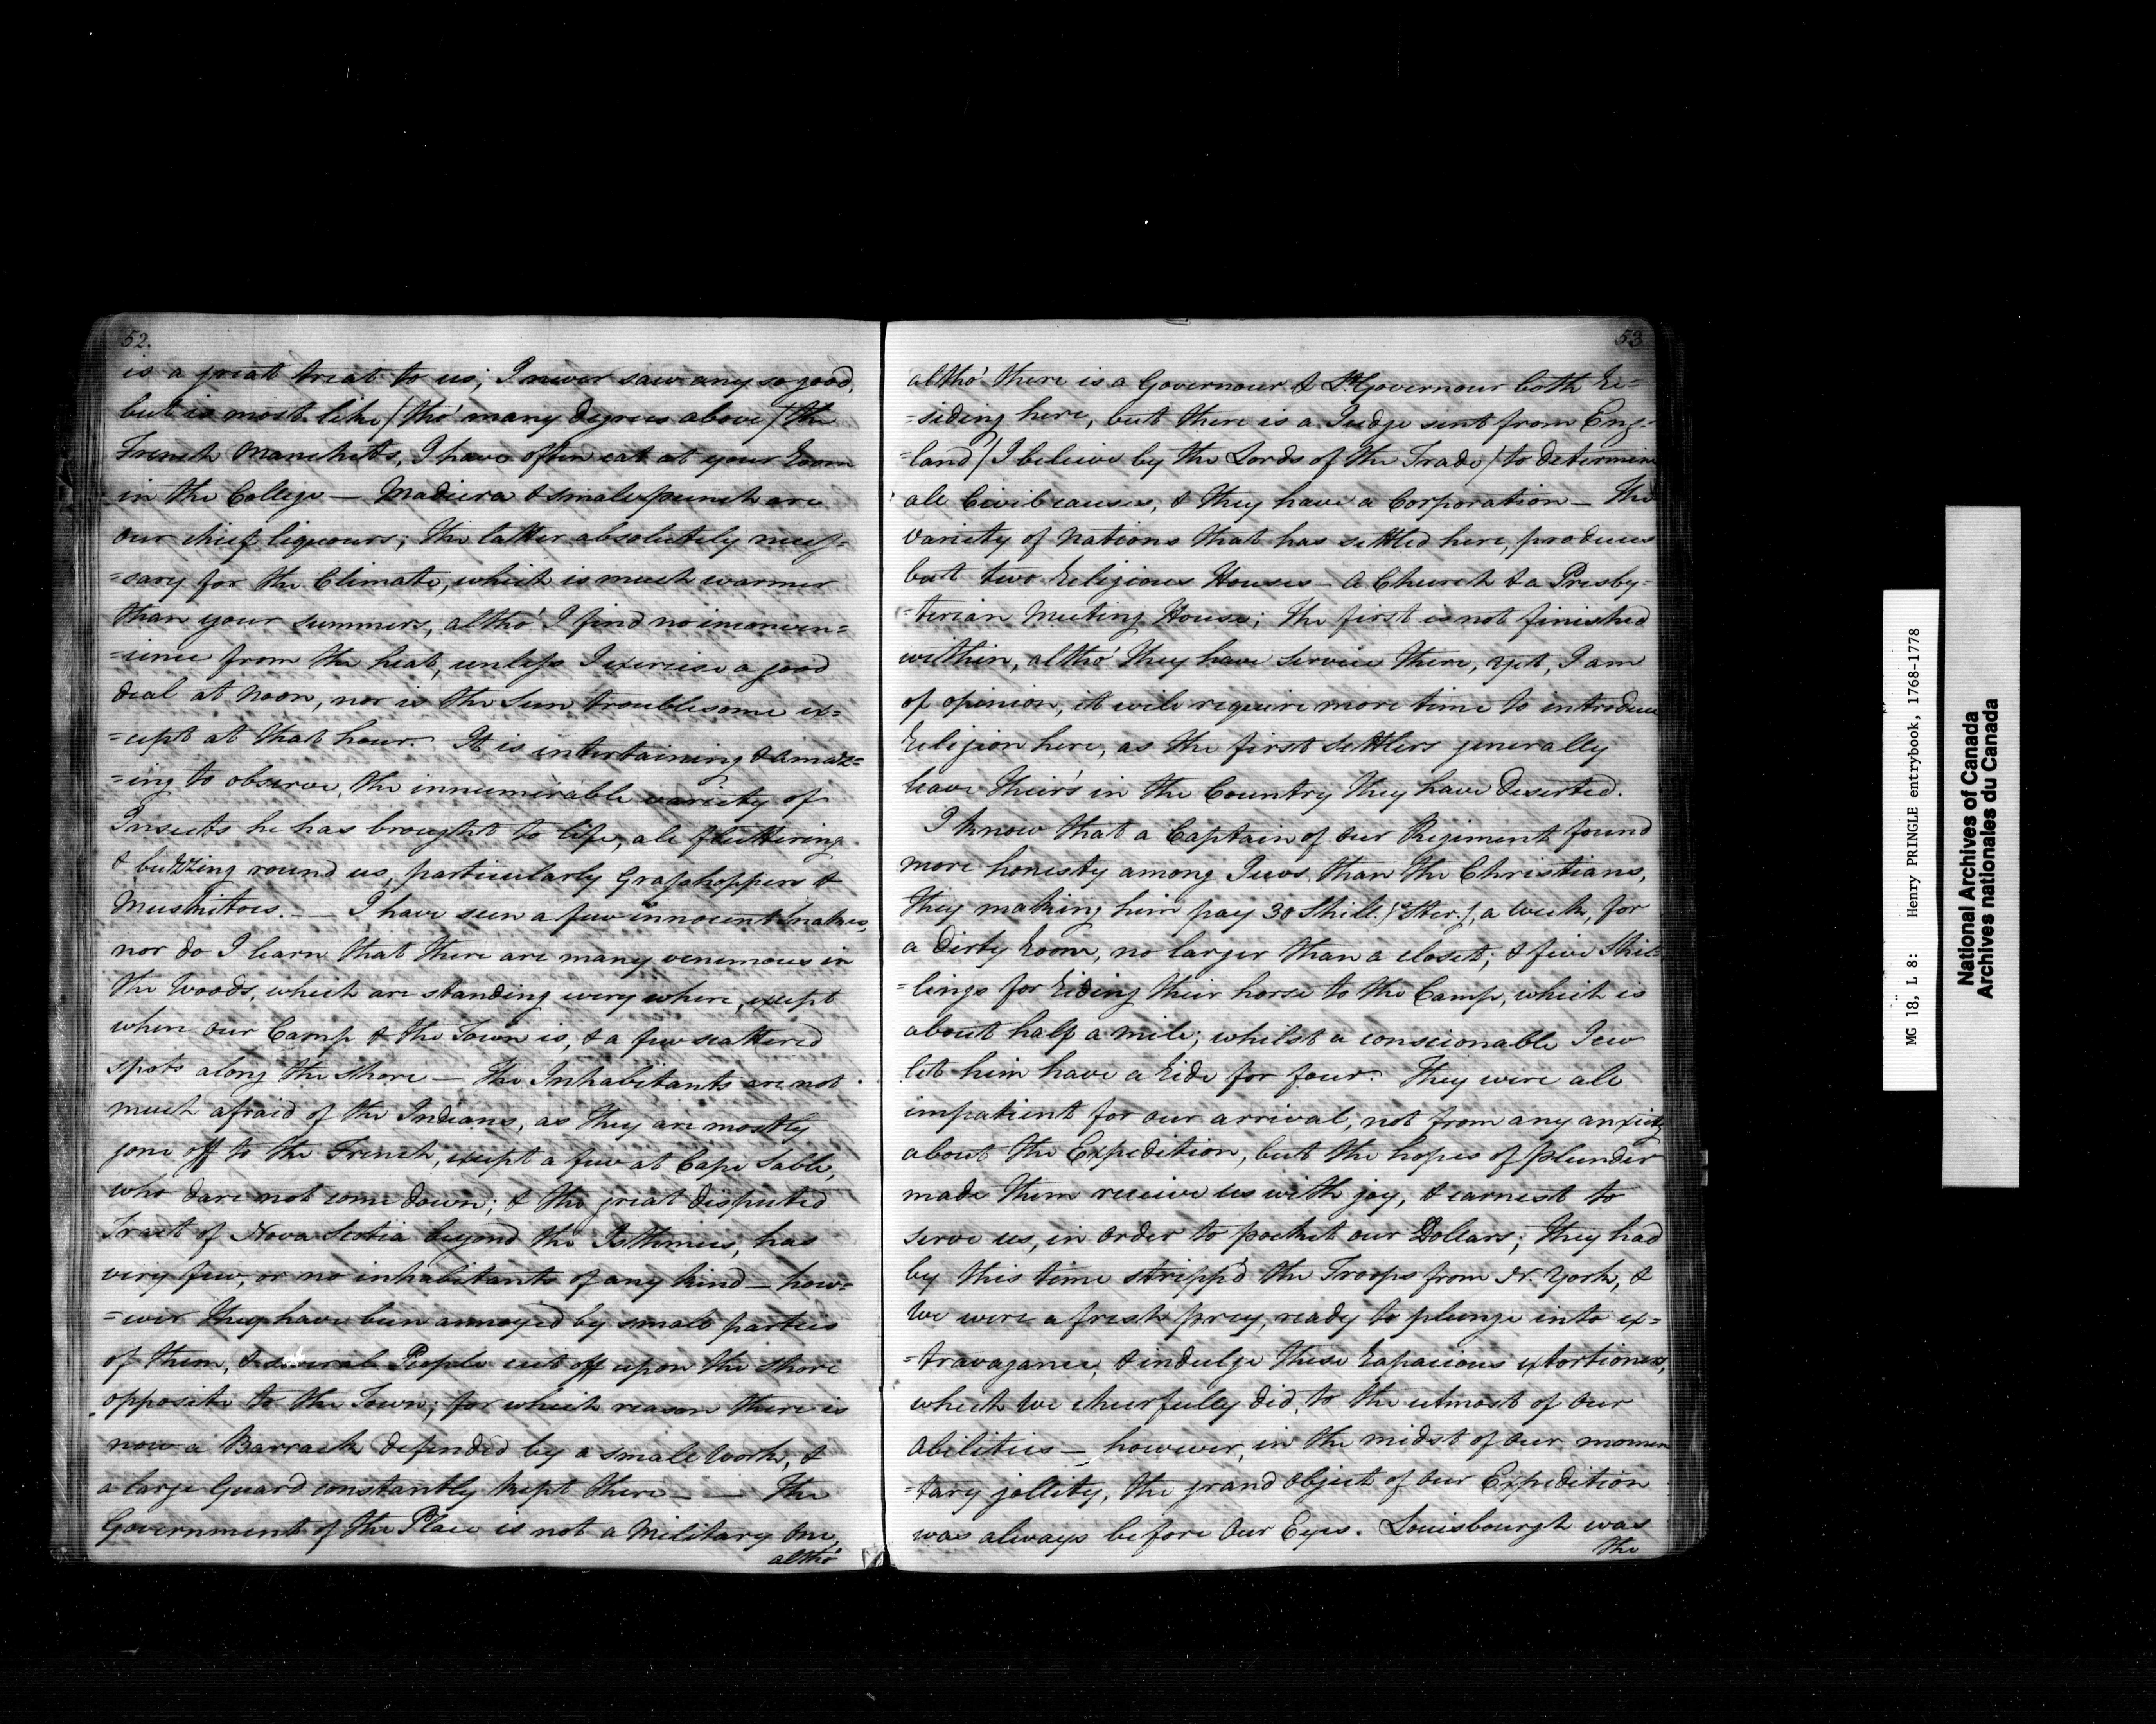 52.
is a great treat to us; I never saw any so good,
but is most like / tho' many Degrees above / the
French Manchetts, I have often eat at your Room
in the College — Madiera & small punch are
our chief liquours; the latter absolutely necess=
=sary for the Climate, which is much warmer
than your summers, altho' I find no inconven=
=ience from the heat, unless I exercise a good
deal at Noon, nor is the Sun troublesome ex=
=cept at that hour. It is entertaining & amaz=
=ing to observe, the innumerable variety of
Insects he has brought to life, all fluttering
& buzzing round us, particularly Grasshoppers &
Muskitoes. — I have seen a few innocent snakes,
nor do I learn that there are many venemous in
the Woods, which are standing every where, except
where our Camp & the Town is, & a few scattered
spots along the shore — the Inhabitants are not
much afraid of the Indians, as they are mostly
gone off to the French, except a few at Cape Sable,
who dare not come down; & the great disputed
Tract of Nova Scotia beyond the Isthmus, has
very few, or no inhabitants of any kind — how=
=ever they have been annoyed by small parties
of them, & several People cut off upon the shore
opposite to the Town; for which reason there is
now a Barrack defended by a small Work, &
a large Guard constantly kept there — — The
Government of the Place is not a Military One,
altho'
53
altho' there is a Governour & Lt. Governour both Re=
=siding here, but there is a Judge sent from Eng=
=land / I believe by the Lords of the Trade / to determine
all Civil causes, & they have a Corporation — The
variety of Nations that has settled here, produces
but two Religious Houses — A Church & a Presby=
=terian Meeting House; the first is not finished
within, altho' they have Service there, yet, I am
of opinion, it will require more time to introduce
Religion here, as the first Settlers generally
leave their's in the Country they have Deserted.
I know that a Captain of our Regiment found
more honesty among Jews than the Christians,
they making him pay 30 Shill. / Ster. /, a Week, for
a Dirty Room, no larger than a closet; & five Shil=
=lings for Riding their horse to the Camp, which is
about half a mile; whilst a conscionable Jew
let him have a Ride for four. They were all
impatient for our arrival, not from any anxiety
about the Expedition, but the hopes of plunder
made them receive us with joy, & earnest to
serve us, in Order to pocket our Dollars; they had
by this time stripp'd the Troops from N. York, &
We were a fresh prey, ready to plunge into ex=
=travagance, & indulge these Rapacious extortioners,
which We chearfully did, to the utmost of our
Abilities — however, in the midst of our momen
=tary jollity, the grand Object of our Expedition
was always before Our Eyes. Louisbourgh was
the
MG 18, L 8: Henry PRINGLE entrybook, 1768-1778
National Archives of Canada
Archives nationales du Canada